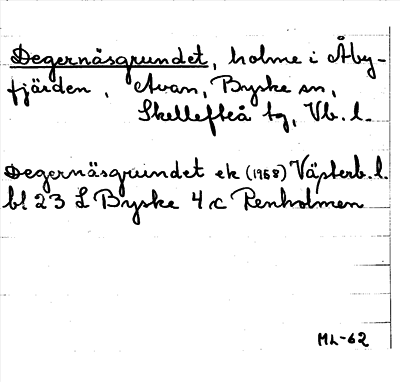 Degernäsgrundet, holme i Åby-
fjärden, Avan, Byske sn,
Skellefteå tg, Vb. l.
Degernäsgrundet ek (1958) Västerb. l.
bl 23 L Byske 4 c Renholmen
ML-62